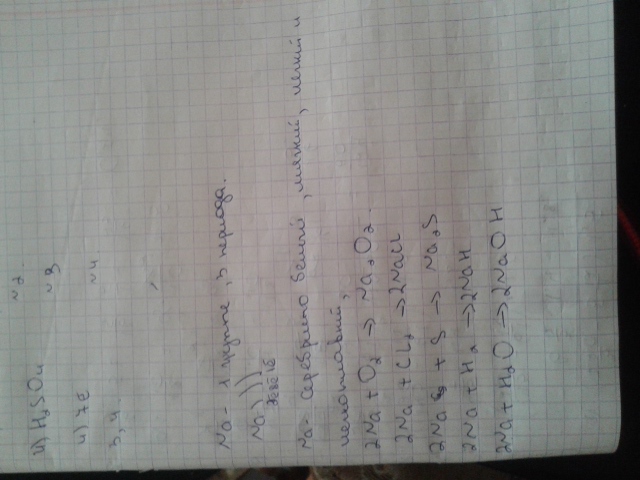 №2.
4) H₂SO₄
№3
4) 7e
№4
3, 4.
Na - 1 группе, 3 периода.
Na )))
2e 8e 1e
Na - серебристо белый, мягкий, легкий и
легкоплавкий,
2Na + O₂ → Na₂O₂.
2Na + Cl₂ → 2NaCl
2Na + S → Na₂S
2Na + H₂ → 2NaH
2Na + H₂O → 2NaOH